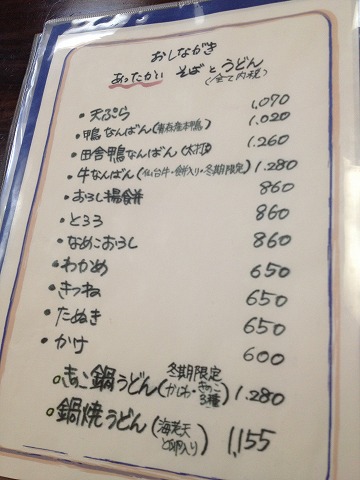 おしながき
あったかい そばとうどん
(全て内税)
・天ぷら 1,070
・鴨なんばん(青森産本鴨) 1,020
・田舎鴨なんばん(太打) 1,260
・牛なんばん(仙台牛・餅入り・冬期限定) 1,280
・おろし揚餅 860
・とろろ 860
・なめこおろし 860
・わかめ 650
・きつね 650
・たぬき 650
・かけ 600
冬期限定
○きのこ鍋うどん(かしわ・きのこ3種) 1,280
○鍋焼うどん(海老天と卵入り) 1,155